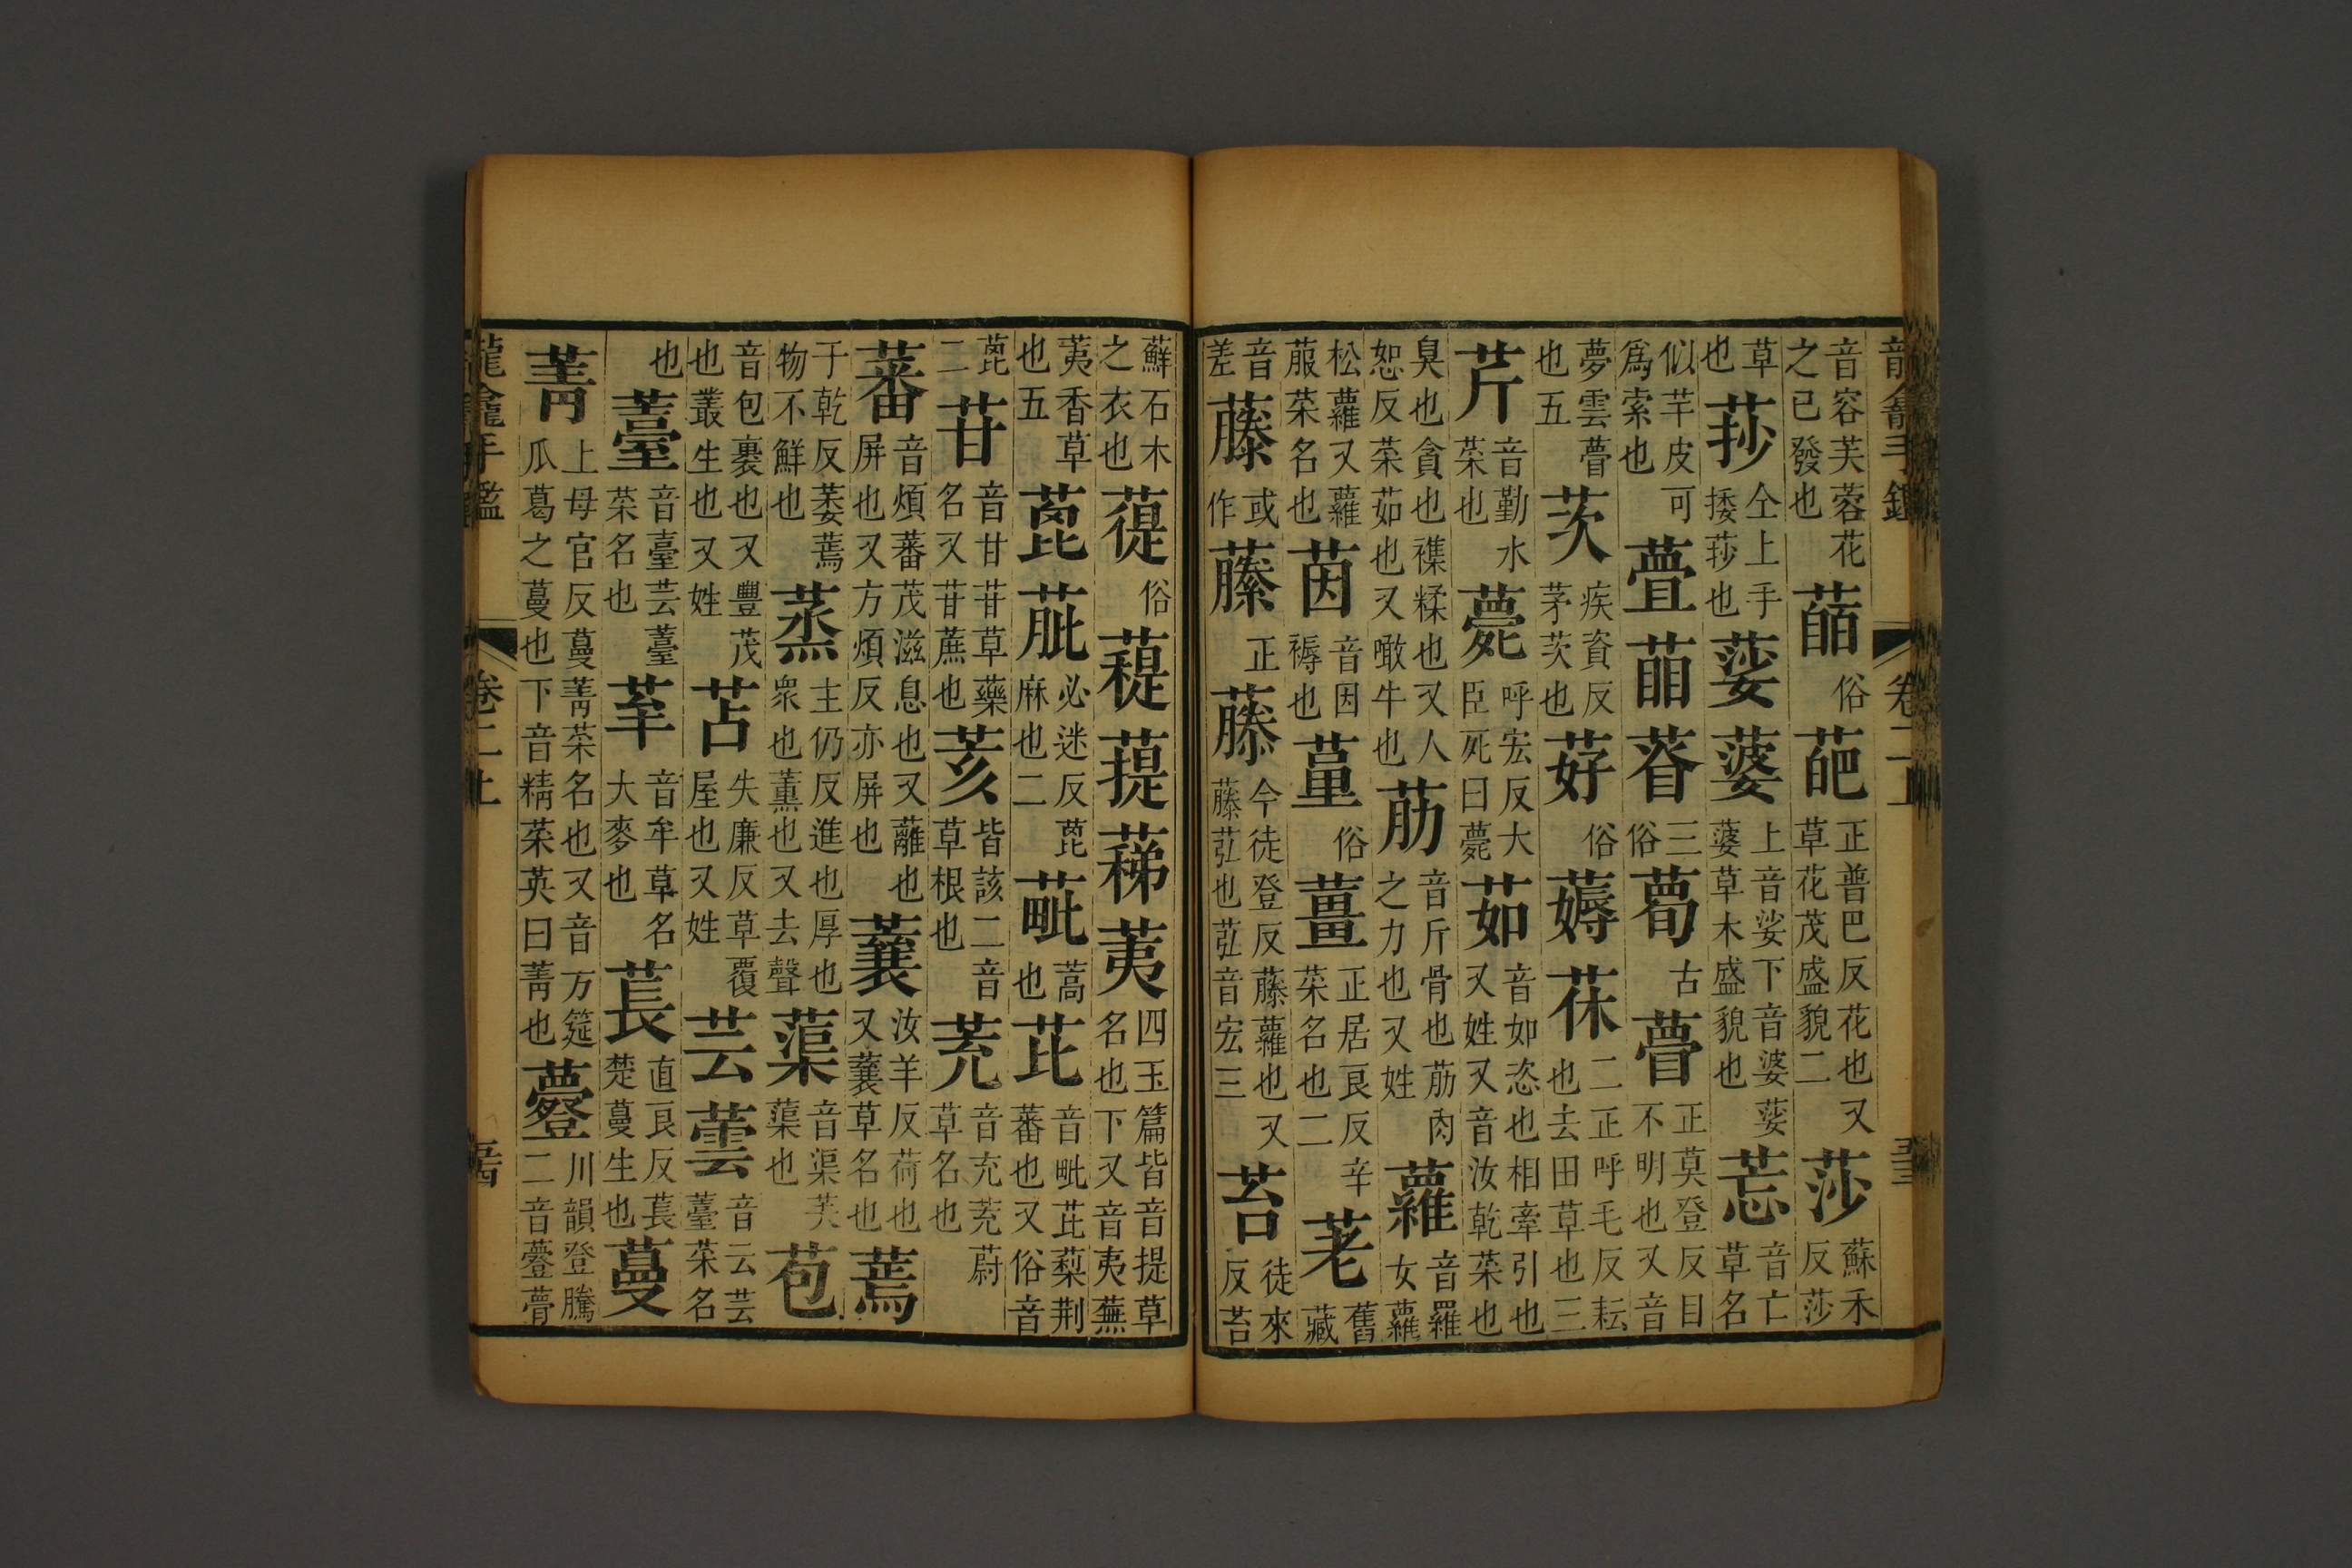 龍龕手鑑
卷二上
五三
音容芙蓉花之已發也䔢俗葩正普巴反花也又草花茂盛貌二莎蘇禾反莎
草也𦯈仝上手挼𦯈也䔑蔢上音娑下音婆䔑蔢草木盛貌也莣音亡草名
似芊皮可爲索也三俗古瞢正莫登反目不明也又音
夢雲瞢也五茨疾資反茅茨也茠俗薅茠二正呼毛反耘也去田草也三
芹音勤水菜也薨呼宏反大臣死曰薨茹音如恣也相牽引也又姓又音汝乾菜也
臭也貪也襍糅也又人恕反菜茹也又噉牛也荕音斤骨也荕肉之力也又姓蘿音羅女蘿
松蘿又蘿菔菜名也茵音因褥也俗薑正居良反辛菜名也二荖舊藏
音差藤或作藤正藤今徒登反藤蘿也又藤苰也苰音宏三苔徒來反苔
蘚石木之衣也俗荑四玉篇皆音提草名也下又音夷蕪
荑香草也五蓖𦮠必迷反蓖麻也二蓖蒿也芘音毗芘蔾荆蕃也又俗音
蓖二苷音甘苷草藥名又苷蔗也荄皆該二音草根也茺音充茺蔚草名也
蕃音煩蕃茂滋息也又蘺也屏也又方煩反亦屏也蘘汝羊反荷也又蘘草名也蔫
于乾反萎蔫物不鮮也蒸主仍反進也厚也衆也薰也又去聲蕖音渠芙蕖也苞
音包裹也又豐茂也叢生也又姓苫失廉反草覆屋也又姓芸蕓音云芸薹菜名
也薹音臺芸薹菜名也䒫音牟草名大麥也萇直良反萇楚蔓生也蔓
菁上母官反蔓菁菜名也又音万筵瓜葛之蔓也下音精菜英曰菁也川韻登騰二音
龍龕手鑑
卷二上
五四